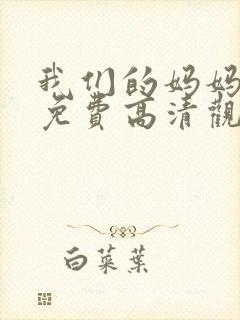 我们的妈妈
免費高清觀
白菜葉